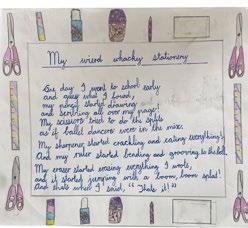 My wierd whacky stationery
One day I went to school early
and guess what I found,
my pencil started drawing
and scribbling all over my page!
My scissors tried to do the splits
as if ballet dancers were in the mix.
My sharpener started crackling and eating everything's
And my ruler started bending and grooving to the bell.
My eraser started erasing everything I wrote,
and it started jumping with a boom, boom splat!
And thats when I said, "Thats it!"